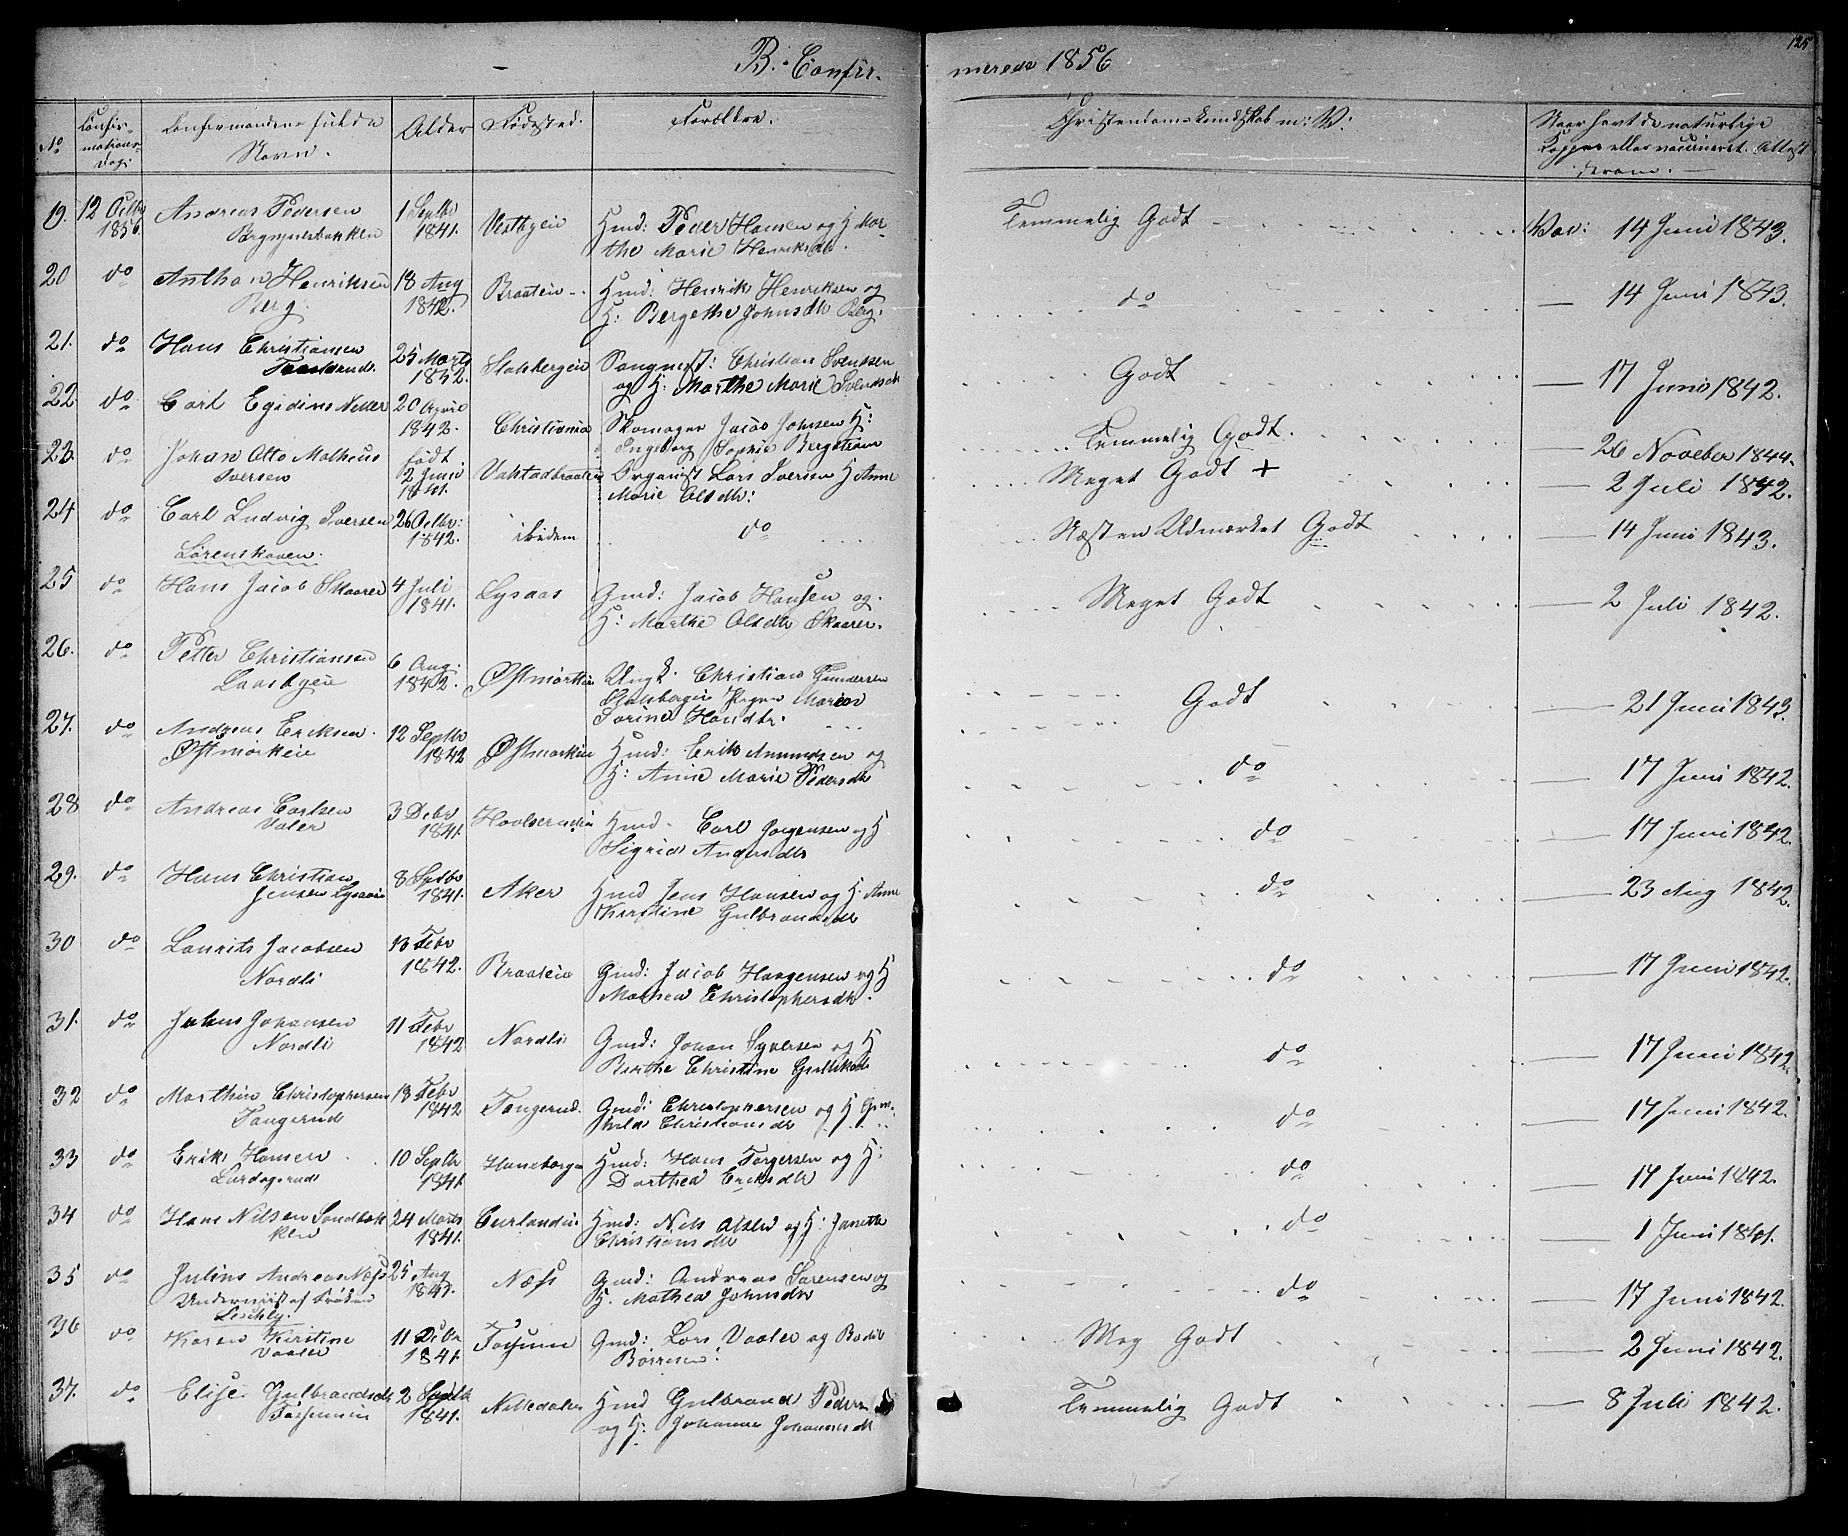 B. Confir-
merede 1856
125
No
Confir-
mations-
Dag.
Confirmandens fulde
Navn.
Alder
Fødested.
Forældre.
Christendomskundskab m: V:
Naar havt de naturlige
Kopper eller vaccineret. Attest
derom.
19. 12 Octbr 1856. Andreas Pedersen 1 Septbr 1841. Vestbyen Hmd: Peder Hansen og H Mar-
the Marie Henriksdtr. Temmelig Godt Vac: 14 Juni 1843.
20 do Anthon Henriksen
Berg. 18 Aug 1842. Braaten Hmd: Henrik Henriksen og
H: Bergethe Johnsdtr Berg. do — 14 Juni 1843.
21. do Hans Christiansen
25 Marts 1842. Stalsbergeie Christian Svendsen
og H: Marthe Marie Svendsdtr Godt — 17 Juni 1842.
22. do Carl Egidius 20 April 1842. Christiania Skomager Jacob Johnsen H:
Ingeborg Sophie Bergstrøm Temmelig Godt. — 26 Novebr 1844.
23. do Johan Otto Matheus
Iversen født
2 Juni
1841. Organist Lars Iversen H Anne
Marie Olsdtr: Meget Godt + — 2 Juli 1842.
24 do Carl Ludvig Iversen
Lørenskoven. 26 Octbr: 1842. ibidem do Næsten Udmærket Godt — 14 Juni 1843.
25 do Hans Jacob Skaarer 4 Juli 1841. Lysaas Gmd: Jacob Hansen og
H: Marthe Olsdtr Skaarer. Meget Godt — 2 Juli 1842.
26. do Petter Christiansen
Laasbyeie 6 Aug: 1842. Østmarken Ungk. Christian Gundersen
Pigen Maren
Sorine Hansdtr. Godt — 21 Juni 1843.
27. do Andreas Eriksen
Østmorkeie 12 Septbr 1842 Østmorkeie Hmd: Erik Amundsen og
H: Anne Marie Pedersdtr do — 17 Juni 1842.
28 do Andreas Carlsen
Valer 3 Debr 1841. Hmd. Carl Jørgensen og H.
Sigrid Andersdtr do — 17 Juni 1842.
29. do Hans Christian
Jensen Lysaas 8 Septbr 1841. Aker Hmd Jens Hansen og H. Anne
Kirstine Gulbrandsdtr do — 23 Aug 1842.
30 do Laurits Jacobsen
Nordli 13 Febr 1842. Braateie Gmd: Jacob Haagensen og H
Mathea Christophersdtr. do — 17 Juni 1842.
31. do Julius Johansen
Nordli 11 Febr 1842 Nordli Gmd: Johan Syversen og H
Berthe Christine do — 17 Juni 1842.
32 do Marthin Christophersen
Tangerud 13 Febr 1842 Tangerud. Gmd: Christophersen og H Gun-
hild Christiansdtr do — 17 Juni 1842.
33 do Erik Hansen
10 Septbr 1841 Haneborgen Hmd: Hans Torgersen og H:
Dorthea Eriksdtr do — 17 Juni 1842.
34 do Hans Nilsen Sandbak-
ken 24 Marts 1841. Hmd: Nils Olsen og H: Janethe
Christiansdtr do — 1 Juni 1841.
35 do Julius Andreas Næss
Underviist af Frøken
25 Aug 1841. Næss Gmd: Andreas Sørensen og
H. Mathea Johnsdtr do — 17 Juni 1842.
36 do Karen Kirstine
Vaaler 11 Debr 1841. Fossum Gmd: Lars Vaaler og Bodil
Børresen. Meg Godt — 2 Juni 1842.
37. do Elise Gulbrandsdtr
2 Septbr 1841. Nittedalen Hmd Gulbrand Peders
og H: Johanne Johannesdtr Temmelig Godt — 8 Juli 1842.